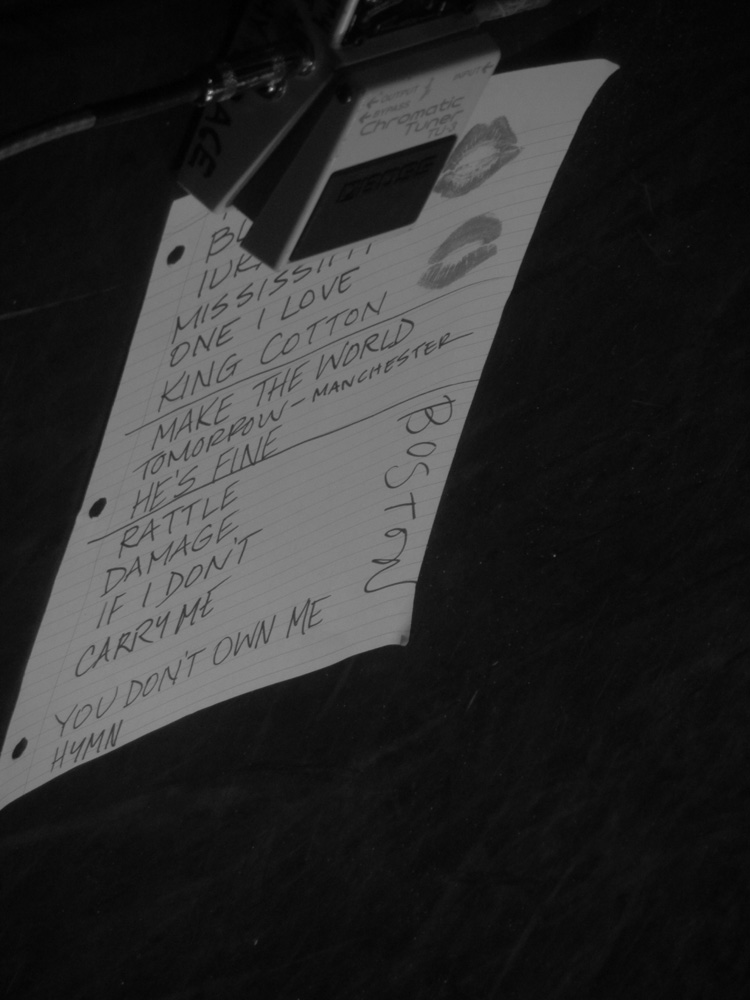 OUTPUT
INPUT
BYPASS
Chromatic
Tuner
TU-3
ONE I LOVE
KING COTTON
MAKE THE WORLD
TOMORROW - MANCHESTER
HE'S FINE
RATTLE
DAMAGE
IF I DON'T
CARRY ME
YOU DON'T OWN ME
HYMN
BOSTON